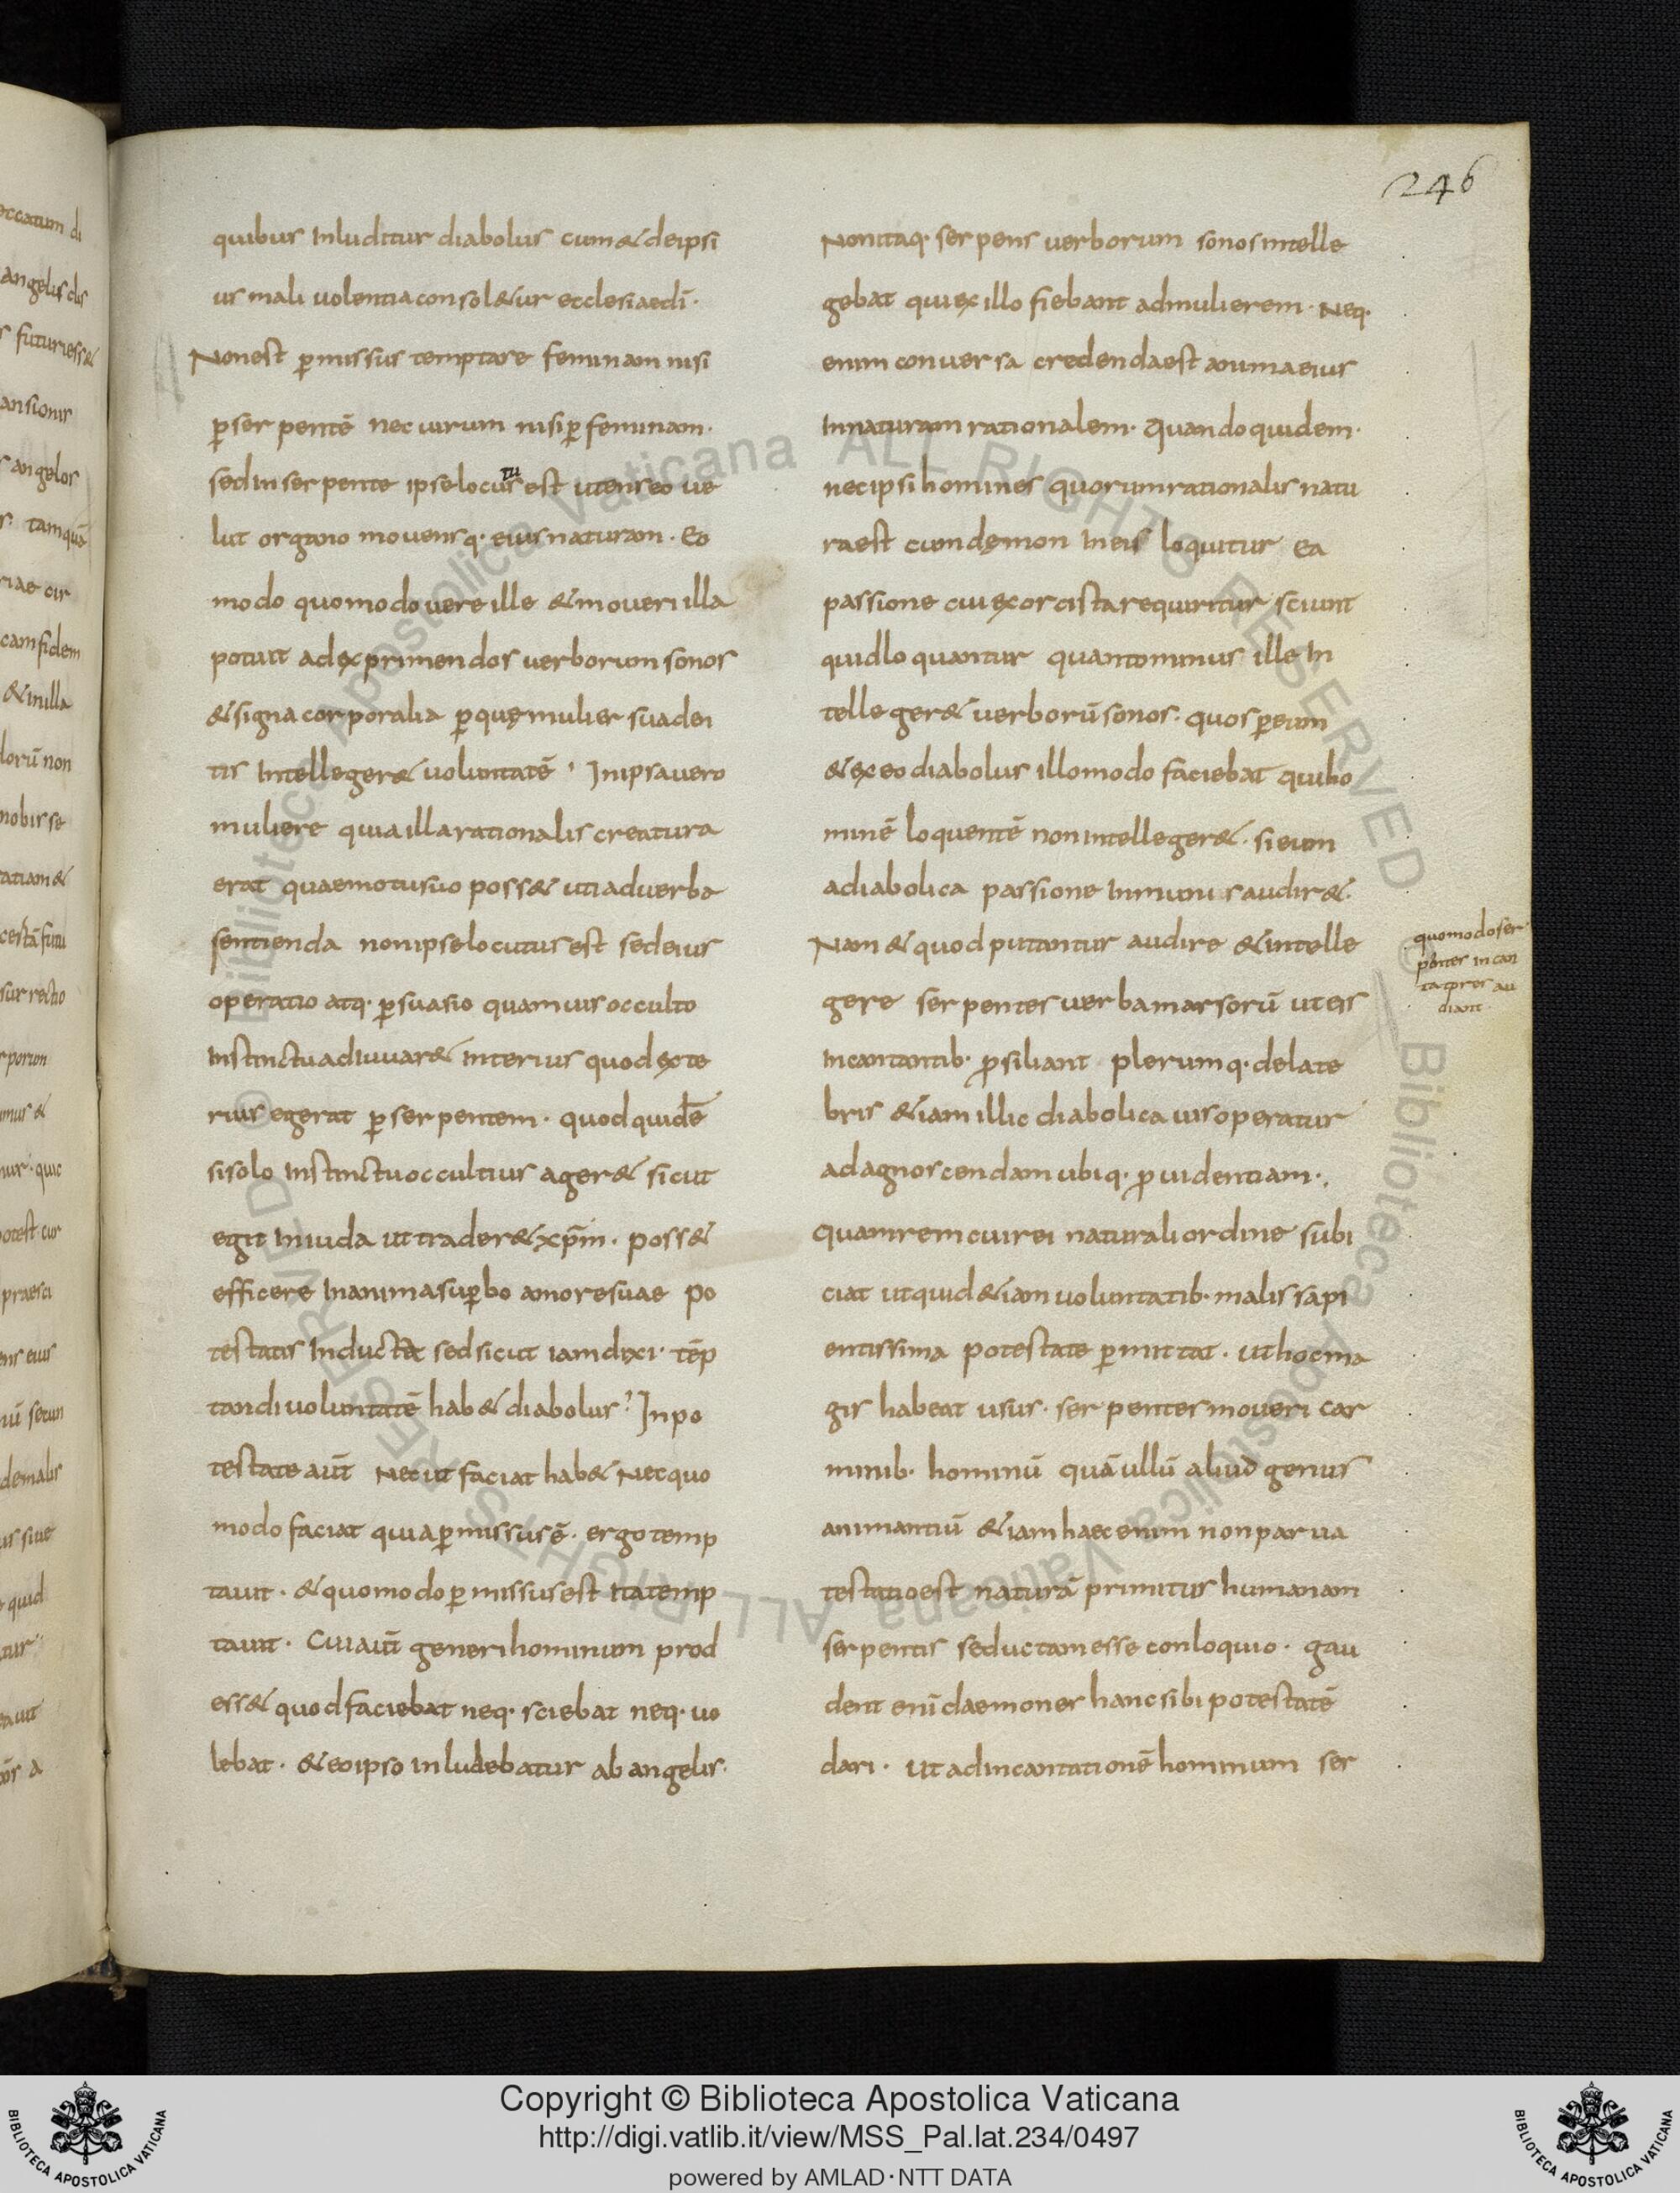 246
quibus inluditur diabolus cum & de ipsi
us maliuolentia consol&ur ecclesiae dī·
Non est ꝑmissus temptare feminam nisi
ꝑ serpentē nec uirum nisi ꝑ feminam·
sed in serpente ipse locutus est utens eo ue
lut organo mouensq· eius naturam· Eo
modo quomodo uere ille & moueri illa
potuit ad exprimendos uerborum sonos
& signa corporalia ꝑ quę mulier suaden
tis intelleger& uoluntatē· In ipsa uero
muliere quia illa rationalis creatura
erat quae motu suo poss& uti ad uerba
sentienda non ipse locutus est sed eius
operatio atq· ꝑsuasio quamuis occulto
instinctu adiuuar& interius quod exte
rius egerat ꝑ serpentem· quod quidē
si solo instinctu occultius ager& sicut
egit in iuda ut trader& xp̄m· poss&
efficere in anima suꝑbo amore suae po
testatis inducta sed sicut iam dixi· tēp
tandi uoluntatē hab& diabolus· In po
testate aūt Nec ut faciat hab& Nec quo
modo faciat quia ꝑmissus ē· ergo temp
tauit· & quomodo ꝑmissus est ita temp
tauit· Cui aūt generi hominum prod
ess& quod faciebat neq· sciebat neq· uo
lebat· & eo ipso inludebatur ab angelis·
Non itaq· serpens uerborum sonos intelle
gebat qui ex illo fiebant ad mulierem· Neq·
enim conuersa credenda est anima eius
in naturam rationalem· Quandoquidem·
nec ipsi homines quorum rationalis natu
ra est cum dęmon in eis loquitur ea
passione cui exorcista requiritur sciunt
quid loquantur quanto minus ille in
telleger& uerborū sonos· quos ꝑ eum
& ex eo diabolus illo modo faciebat qui ho
minē loquentē non intelleger&· si eum
a diabolica passione inmunis audir&·
Nam & quod putantur audire & intelle
gere serpentes uerba marsorū ut eis
incantantib· ꝓsiliant plerumq· de late
bris &iam illic diabolica uis operatur
ad agnoscendam ubiq· ꝓuidentiam·,
quam rem cui rei naturali ordine subi
ciat ut quid &iam uoluntatib· malis sapi
entissima potestate ꝑmittat· ut hoc ma
gis habeat usus· serpentes moueri car
minib· hominū quā ullū aliud genus
animantiū &iam haec enim non parua
testatio est naturā primitus humanam
serpentis seductam esse conloquio· gau
dent enī daemones hanc sibi potestatē
dari· ut ad incantationē hominum ser
quomodo ser
pentes incan
tatores au
diant
Copyright © Biblioteca Apostolica Vaticana
http://digi.vatlib.it/view/MSS_Pal.lat.234/0497
powered by AMLAD·NTT DATA
BIBLIOTECA APOSTOLICA VATICANA
BIBLIOTECA APOSTOLICA VATICANA